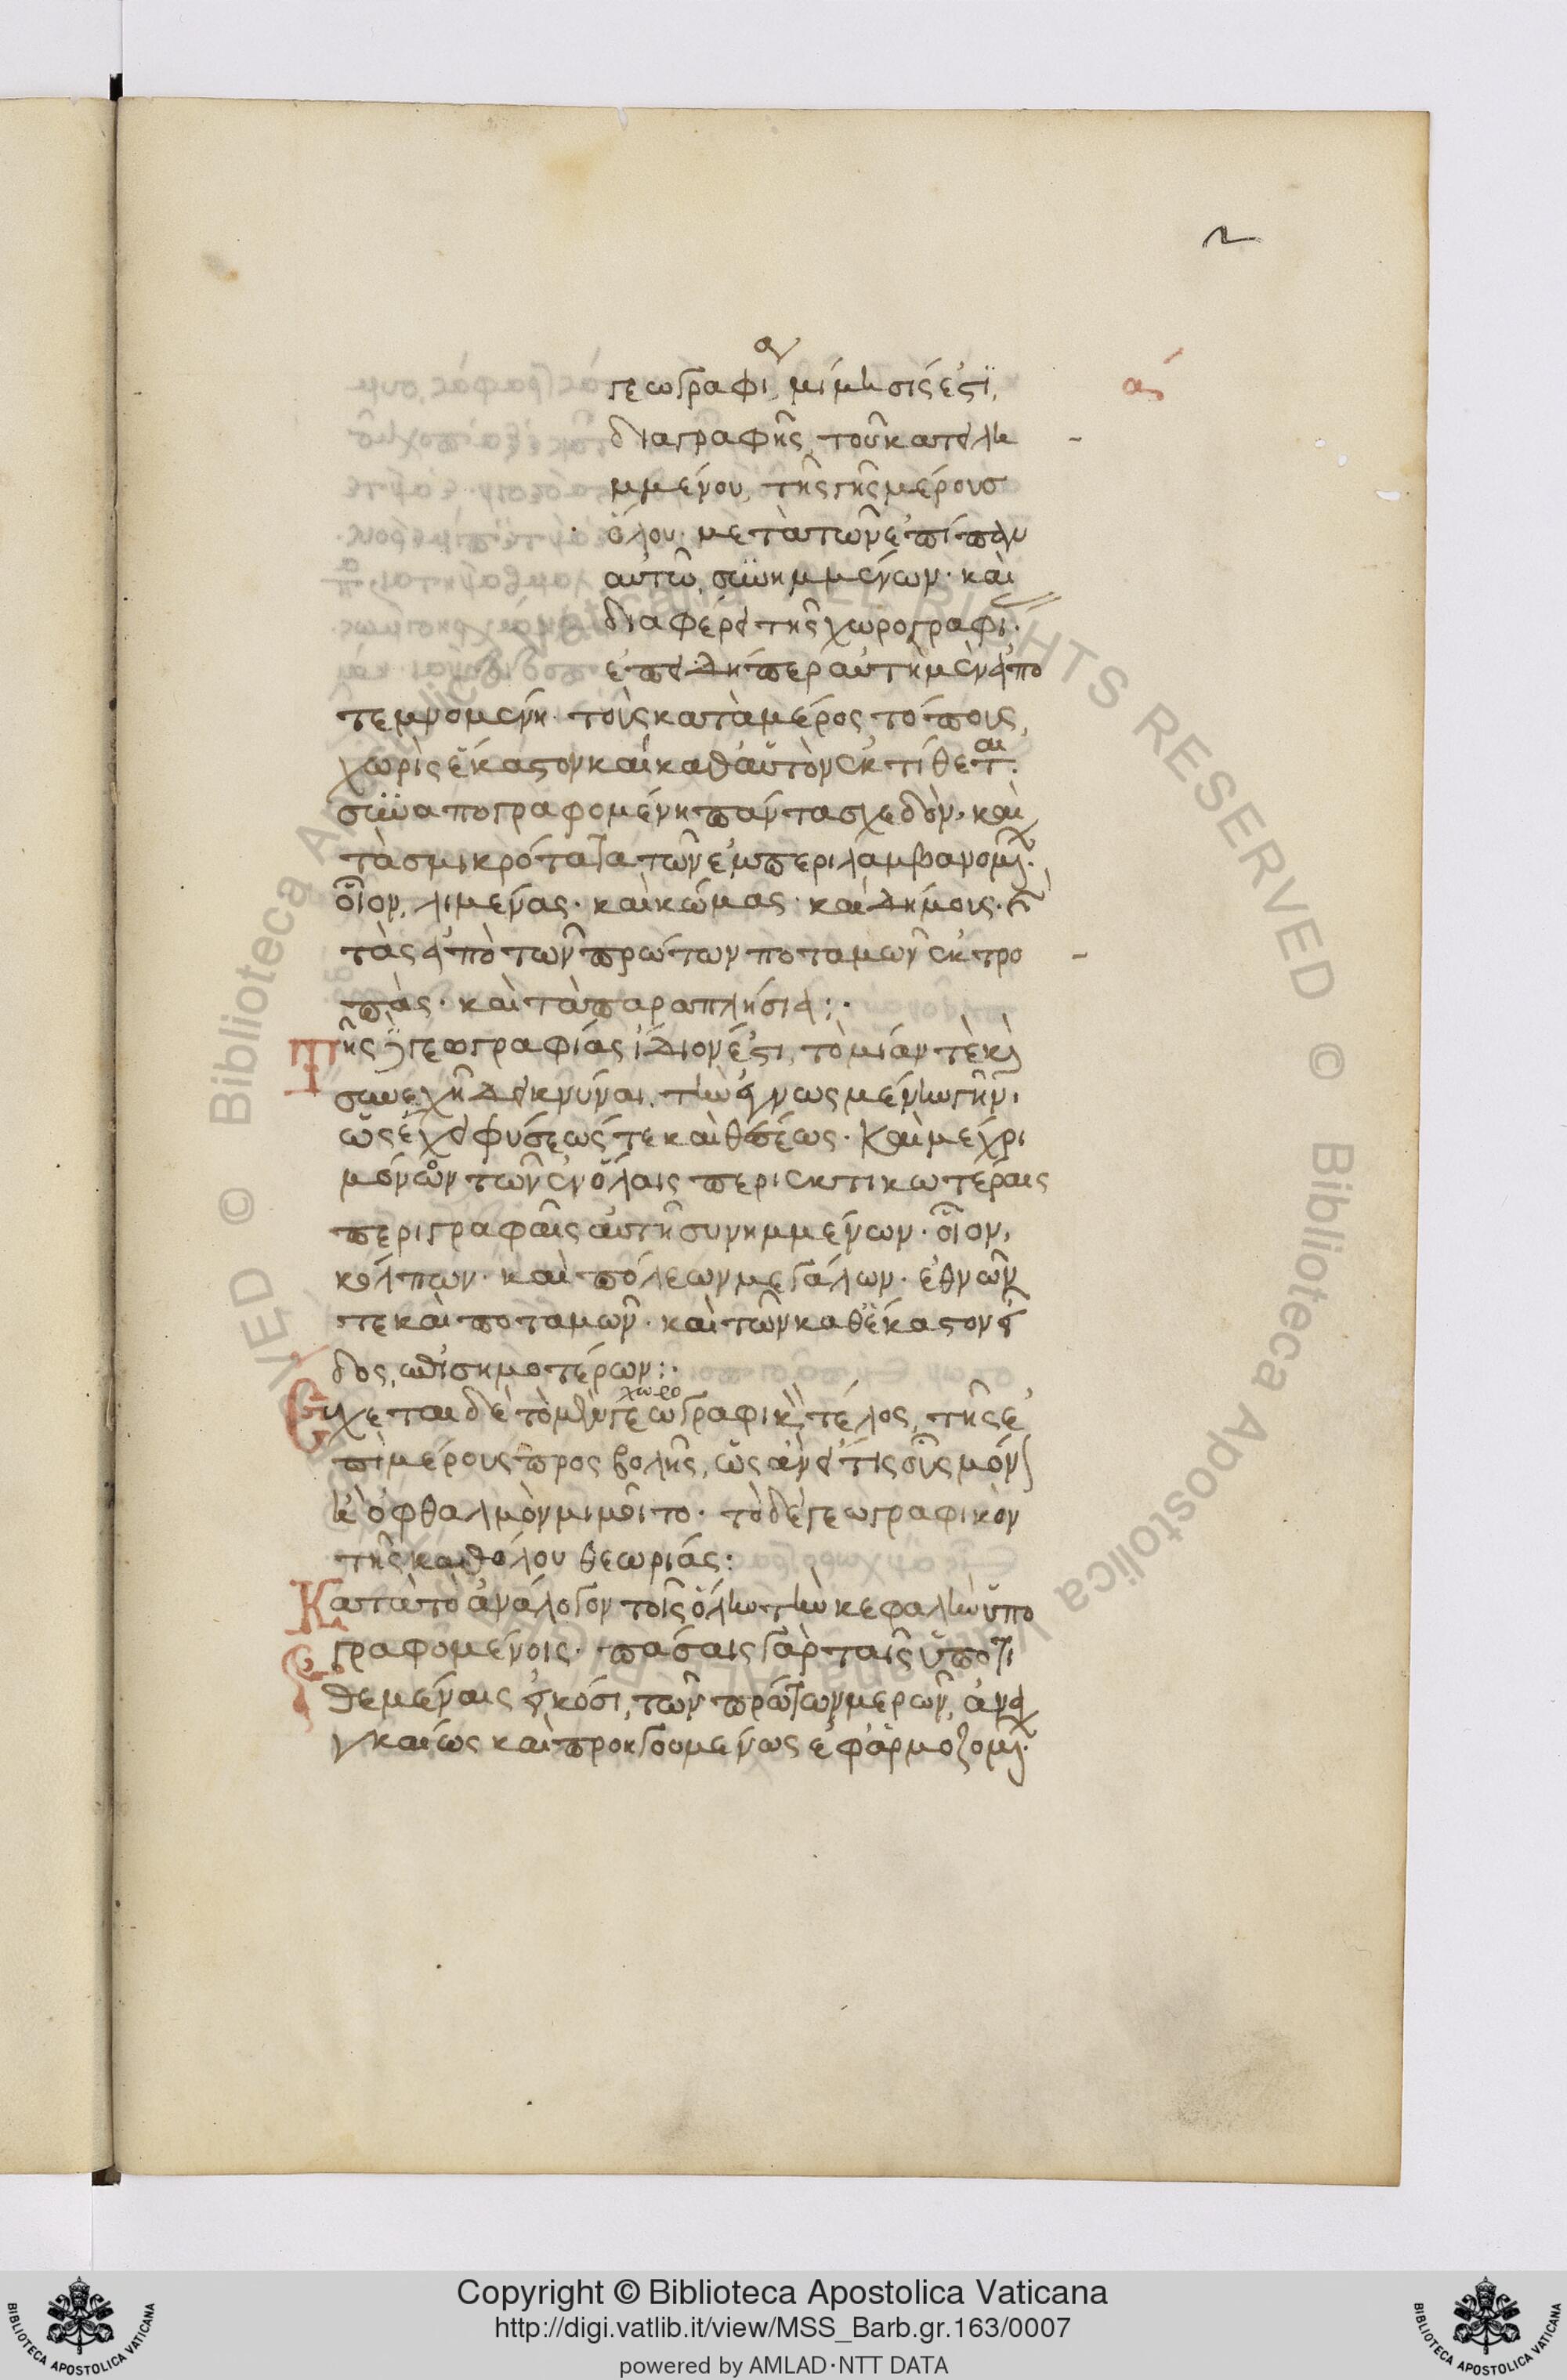 2
α´
γεωγραφία μίμησίς ἐστϊ,
διαγραφῆς, τοῦ κατειλη
μμένου, τῆς γῆς μέρους
ὅλου· μετὰ τῶν ἐπίπαν
αὐτῶ, συνημμένων· καὶ
διαφέρει τῆς χωρογραφί·
ἐπειδήπερ αὐτὴ μὲν ἀπο
τεμνομένη· τοὺς κατὰ μέρος τόπους,
χωρὶς ἕκαστον καὶ καθ' αὑτὸν ἐκτίθεται·
συναπογραφομένη πάντα σχεδὸν, καὶ
τὰ σμικρότατα τῶν ἐμπεριλαμβανομν·
οἷον, λιμένας· καὶ κώμας· καὶ δήμους· κ
τὰς ἀπὸ τῶν πρώτων ποταμῶν ἐκτρο
πὰς· καὶ τὰ παραπλήσια:·
Τῆς δὲ γεωγραφίας ἴδιόν ἐστι, τὸ μίαν τὲ κ
συνεχῆ δεικνύναι, τὴν ἐγνωσμένην γῆν,
ὡς ἔχει φύσεώς τε καὶ θέσεως· καὶ μέχρι
μόνων τῶν ἐν ὅλαις περιεκτικωτέραις
περιγραφαῖς αὐτῆ συνημμένων· οἷον,
κόλπων· καὶ πόλεων μεγάλων· ἐθνῶν
τε καὶ ποταμῶν· καὶ τῶν καθ' ἕκαστον εἶ
δος, ἐπισημοτέρων:·
χωρο
Ἔχεται δὲ τὸ μὲν γεωγραφικὸν τέλος, τῆς ἐ
πὶ μέρους προσβολῆς, ὡς ἂν εἴ τις οὖς μόν
ἢ ὀφθαλμὸν μιμοῖτο· τὸ δὲ γεωγραφικὸν
τῆς καθόλου θεωρίας:
Κατὰ τὸ ἀνάλογον τοῖς ὅλην τὴν κεφαλὴν ὑπο
γραφομένοις· πάσαις γὰρ ταῖς ὑποτι
θεμέναις εἰκόσι, τῶν πρώτων μερῶν, ἀνα
γκαίως καὶ προηγουμένως ἐφαρμοζομν·
© Biblioteca Apostolica Vaticana ALL RIGHTS RESERVED © Biblioteca Apostolica Vaticana ALL RIGHTS RESERVED
Copyright © Biblioteca Apostolica Vaticana
http://digi.vatlib.it/view/MSS_Barb.gr.163/0007
powered by AMLAD·NTT DATA
BIBLIOTECA APOSTOLICA VATICANA
BIBLIOTECA APOSTOLICA VATICANA